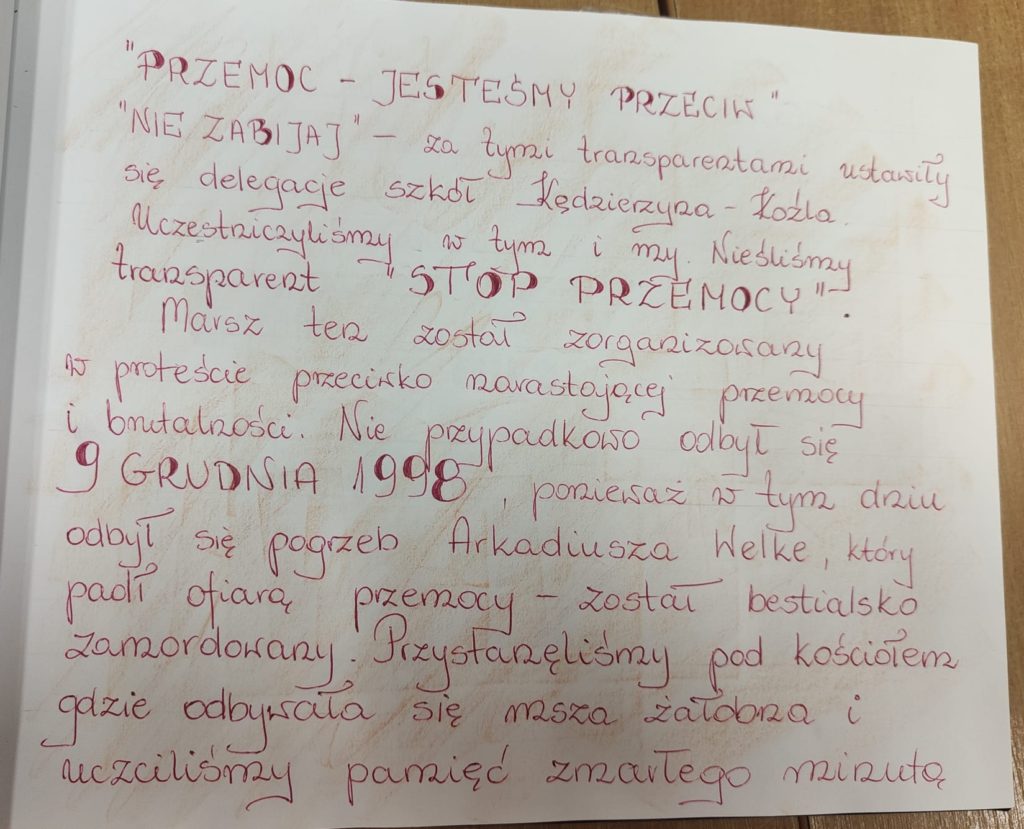 "PRZEMOC - JESTEŚMY PRZECIW"
"NIE ZABIJAJ" - za tymi transparentami ustawiły
się delegacje szkół Kędzierzyna - Koźla.
Uczestniczyliśmy w tym i my. Nieśliśmy
transparent "STOP PRZEMOCY".
Marsz ten został zorganizowany
w proteście przeciwko narastającej przemocy
i brutalności. Nie przypadkowo odbył się
9 GRUDNIA 1998, ponieważ w tym dniu
odbył się pogrzeb Arkadiusza Welke, który
padł ofiarą przemocy - został bestialsko
zamordowany. Przystanęliśmy pod kościołem
gdzie odbywała się msza żałobna i
uczciliśmy pamięć zmarłego minutą